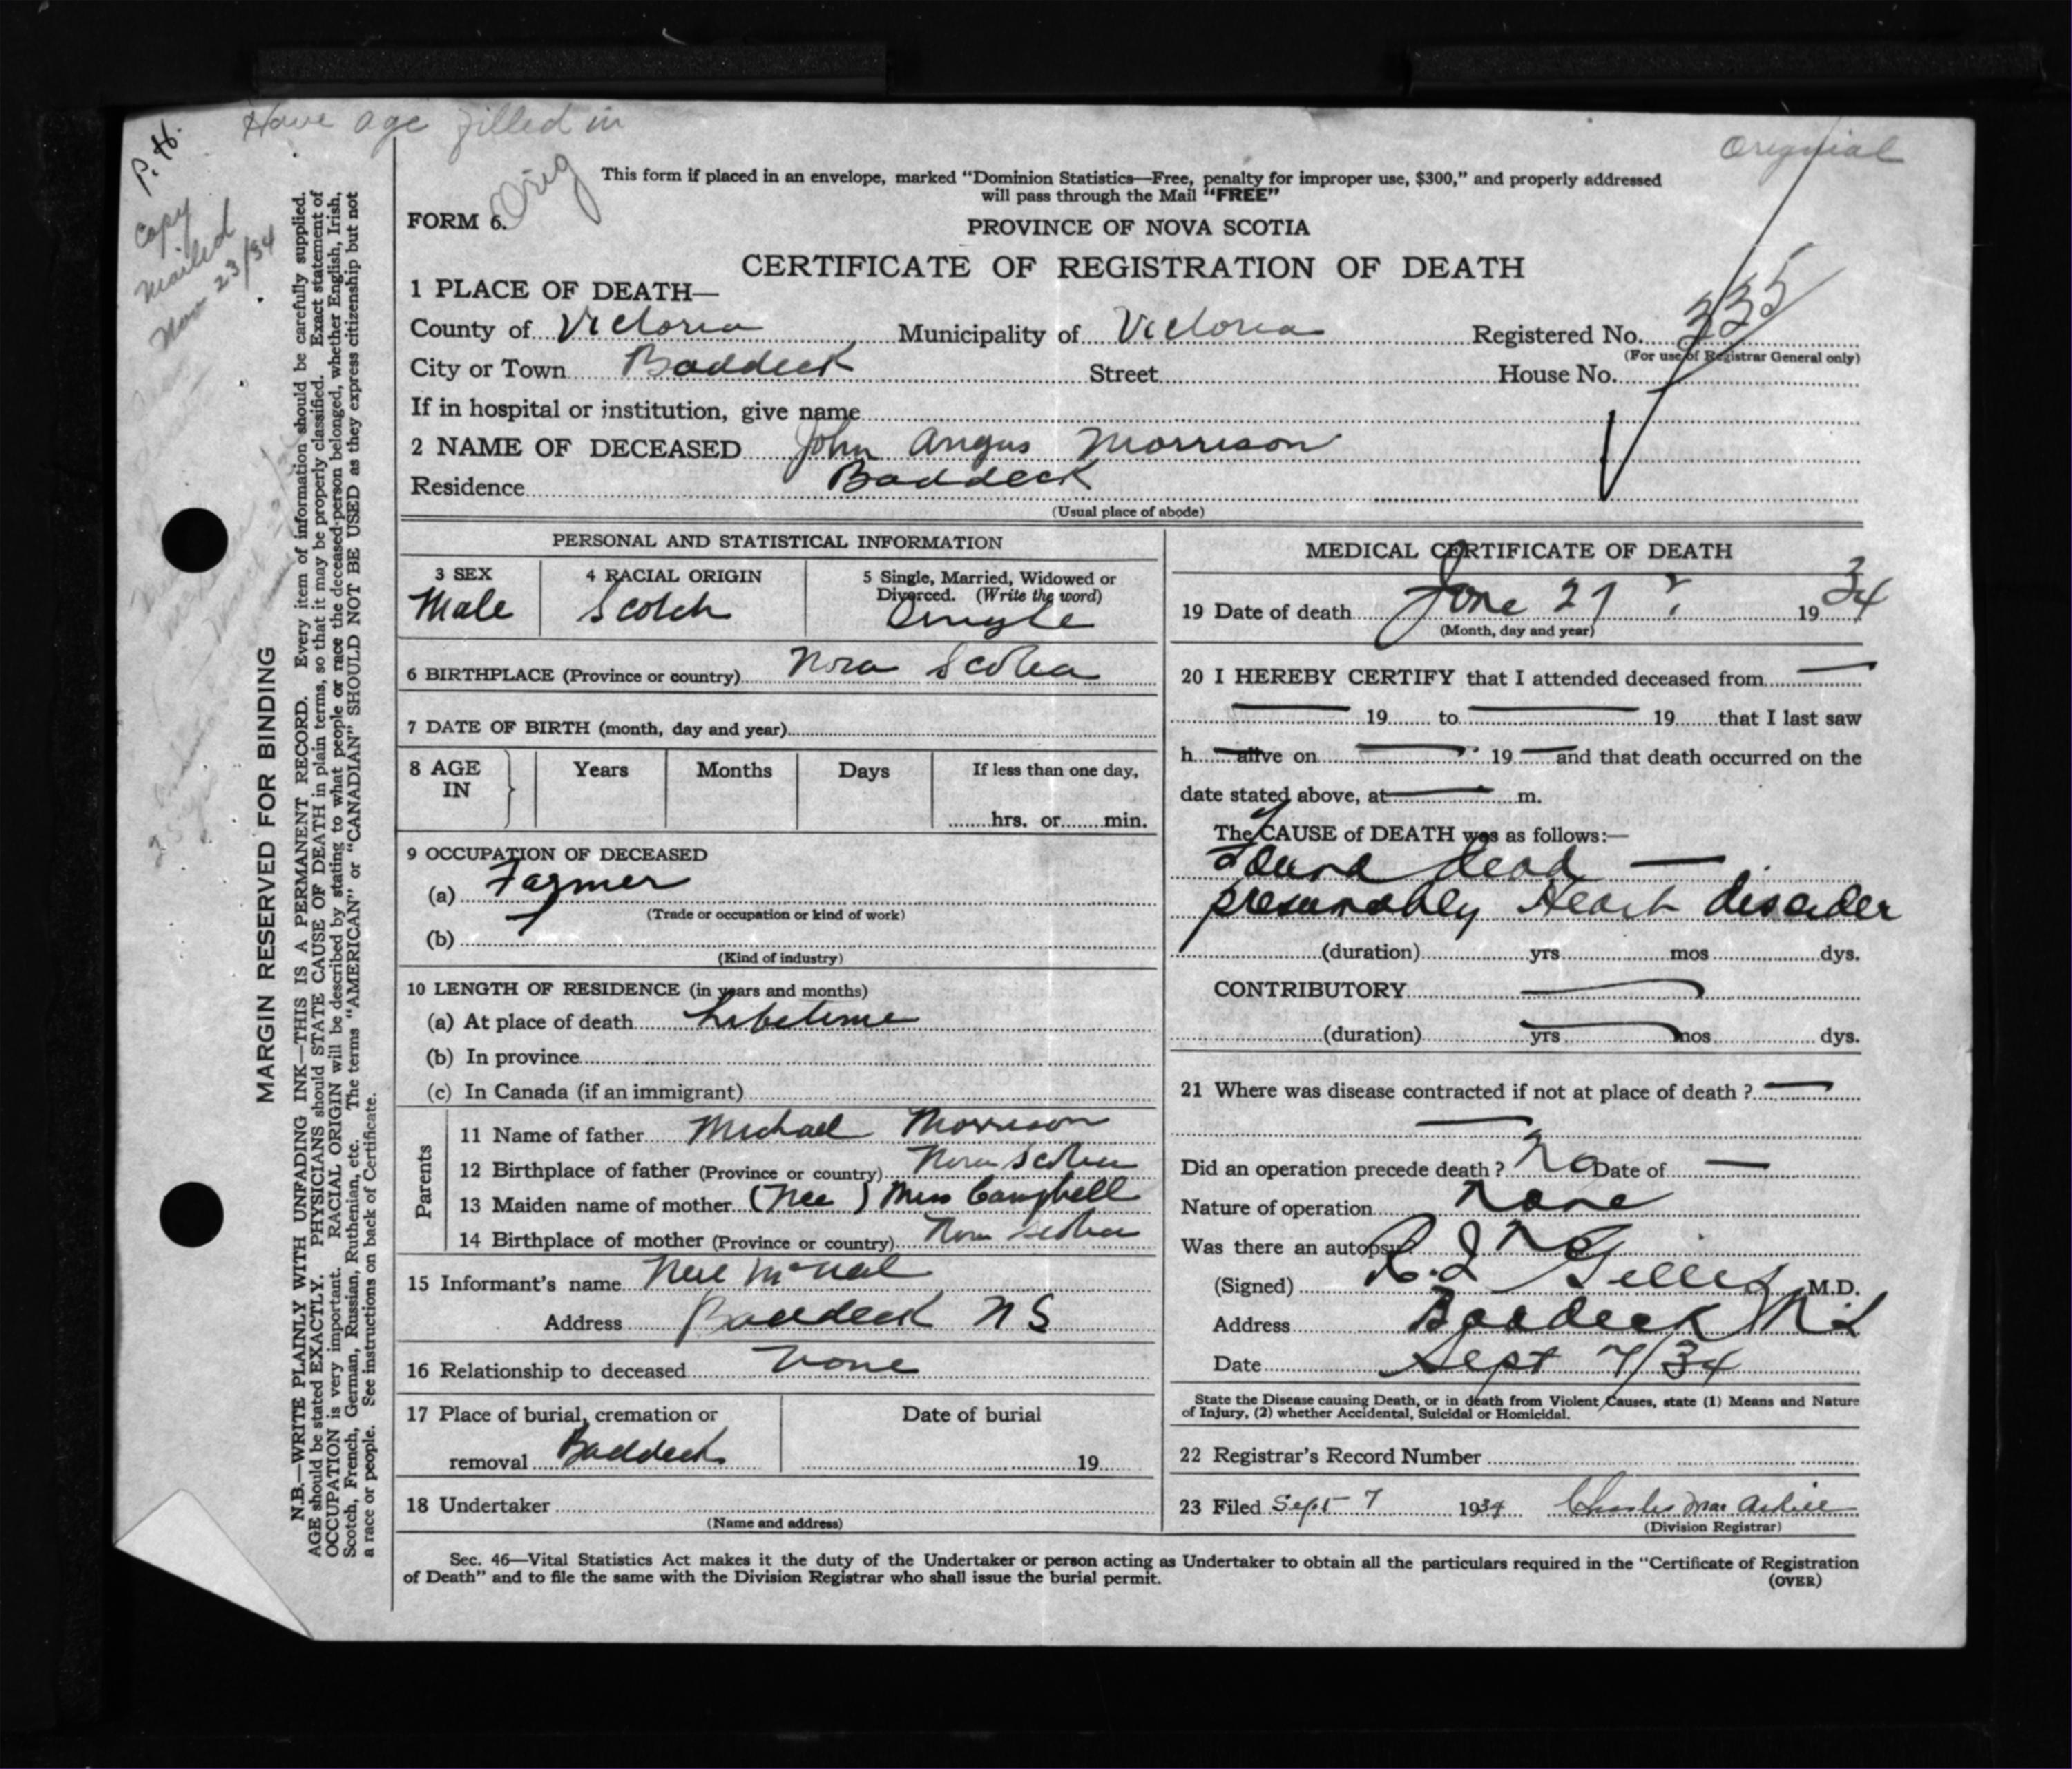 Have age filled in
Orignial
P. H.
Copy
mailed
Nov 23/34
Orig
This form if placed in an envelope, marked "Dominion Statistics—Free, penalty for improper use, $300," and properly addressed
will pass through the Mail "FREE"
FORM 6.
PROVINCE OF NOVA SCOTIA
CERTIFICATE OF REGISTRATION OF DEATH
1 PLACE OF DEATH—
County of Victoria Municipality of Victoria Registered No. 335
(For use of Registrar General only)
City or Town Baddeck Street House No.
If in hospital or institution, give name
2 NAME OF DECEASED John Angus Morrison
Residence Baddeck
(Usual place of abode)
PERSONAL AND STATISTICAL INFORMATION
3 SEX 4 RACIAL ORIGIN 5 Single, Married, Widowed or
Divorced. (Write the word)
Male Scotch Single
6 BIRTHPLACE (Province or country) Nova Scotia
7 DATE OF BIRTH (month, day and year)
8 AGE IN Years Months Days If less than one day,
hrs. or min.
9 OCCUPATION OF DECEASED
(a) Farmer
(Trade or occupation or kind of work)
(b)
(Kind of industry)
10 LENGTH OF RESIDENCE (in years and months)
(a) At place of death Lifetime
(b) In province
(c) In Canada (if an immigrant)
Parents
11 Name of father Michael Morrison
12 Birthplace of father (Province or country) Nova Scotia
13 Maiden name of mother (Nee) Miss Campbell
14 Birthplace of mother (Province or country) Nova Scotia
15 Informant's name Neil McNeil
Address Baddeck N S
16 Relationship to deceased None
17 Place of burial, cremation or Date of burial
removal Baddeck 19
18 Undertaker
(Name and address)
MEDICAL CERTIFICATE OF DEATH
19 Date of death June 27 ? 1934
(Month, day and year)
20 I HEREBY CERTIFY that I attended deceased from —
— 19 to — 19 that I last saw
h alive on — 19 — and that death occurred on the
date stated above, at — m.
The CAUSE of DEATH was as follows:—
Found dead —
presumably Heart disorder
(duration) yrs mos dys.
CONTRIBUTORY —
(duration) yrs mos dys.
21 Where was disease contracted if not at place of death ? —
—
Did an operation precede death ? No Date of —
Nature of operation None
Was there an autopsy No
(Signed) R. J Gillis M.D.
Address Baddeck N S
Date Sept 7/34
State the Disease causing Death, or in death from Violent Causes, state (1) Means and Nature
of Injury, (2) whether Accidental, Suicidal or Homicidal.
22 Registrar's Record Number
23 Filed Sept 7 1934 Charles Mac Ardile
(Division Registrar)
Sec. 46—Vital Statistics Act makes it the duty of the Undertaker or person acting as Undertaker to obtain all the particulars required in the "Certificate of Registration
of Death" and to file the same with the Division Registrar who shall issue the burial permit.
(OVER)
MARGIN RESERVED FOR BINDING
N.B.—WRITE PLAINLY WITH UNFADING INK—THIS IS A PERMANENT RECORD. Every item of information should be carefully supplied.
AGE should be stated EXACTLY. PHYSICIANS should STATE CAUSE OF DEATH in plain terms, so that it may be properly classified. Exact statement of
OCCUPATION is very important. RACIAL ORIGIN will be described by stating to what people or race the deceased person belonged, whether English, Irish,
Scotch, French, German, Russian, Ruthenian, etc. The terms "AMERICAN" or "CANADIAN" SHOULD NOT BE USED as they express citizenship but not
a race or people. See instructions on back of Certificate.